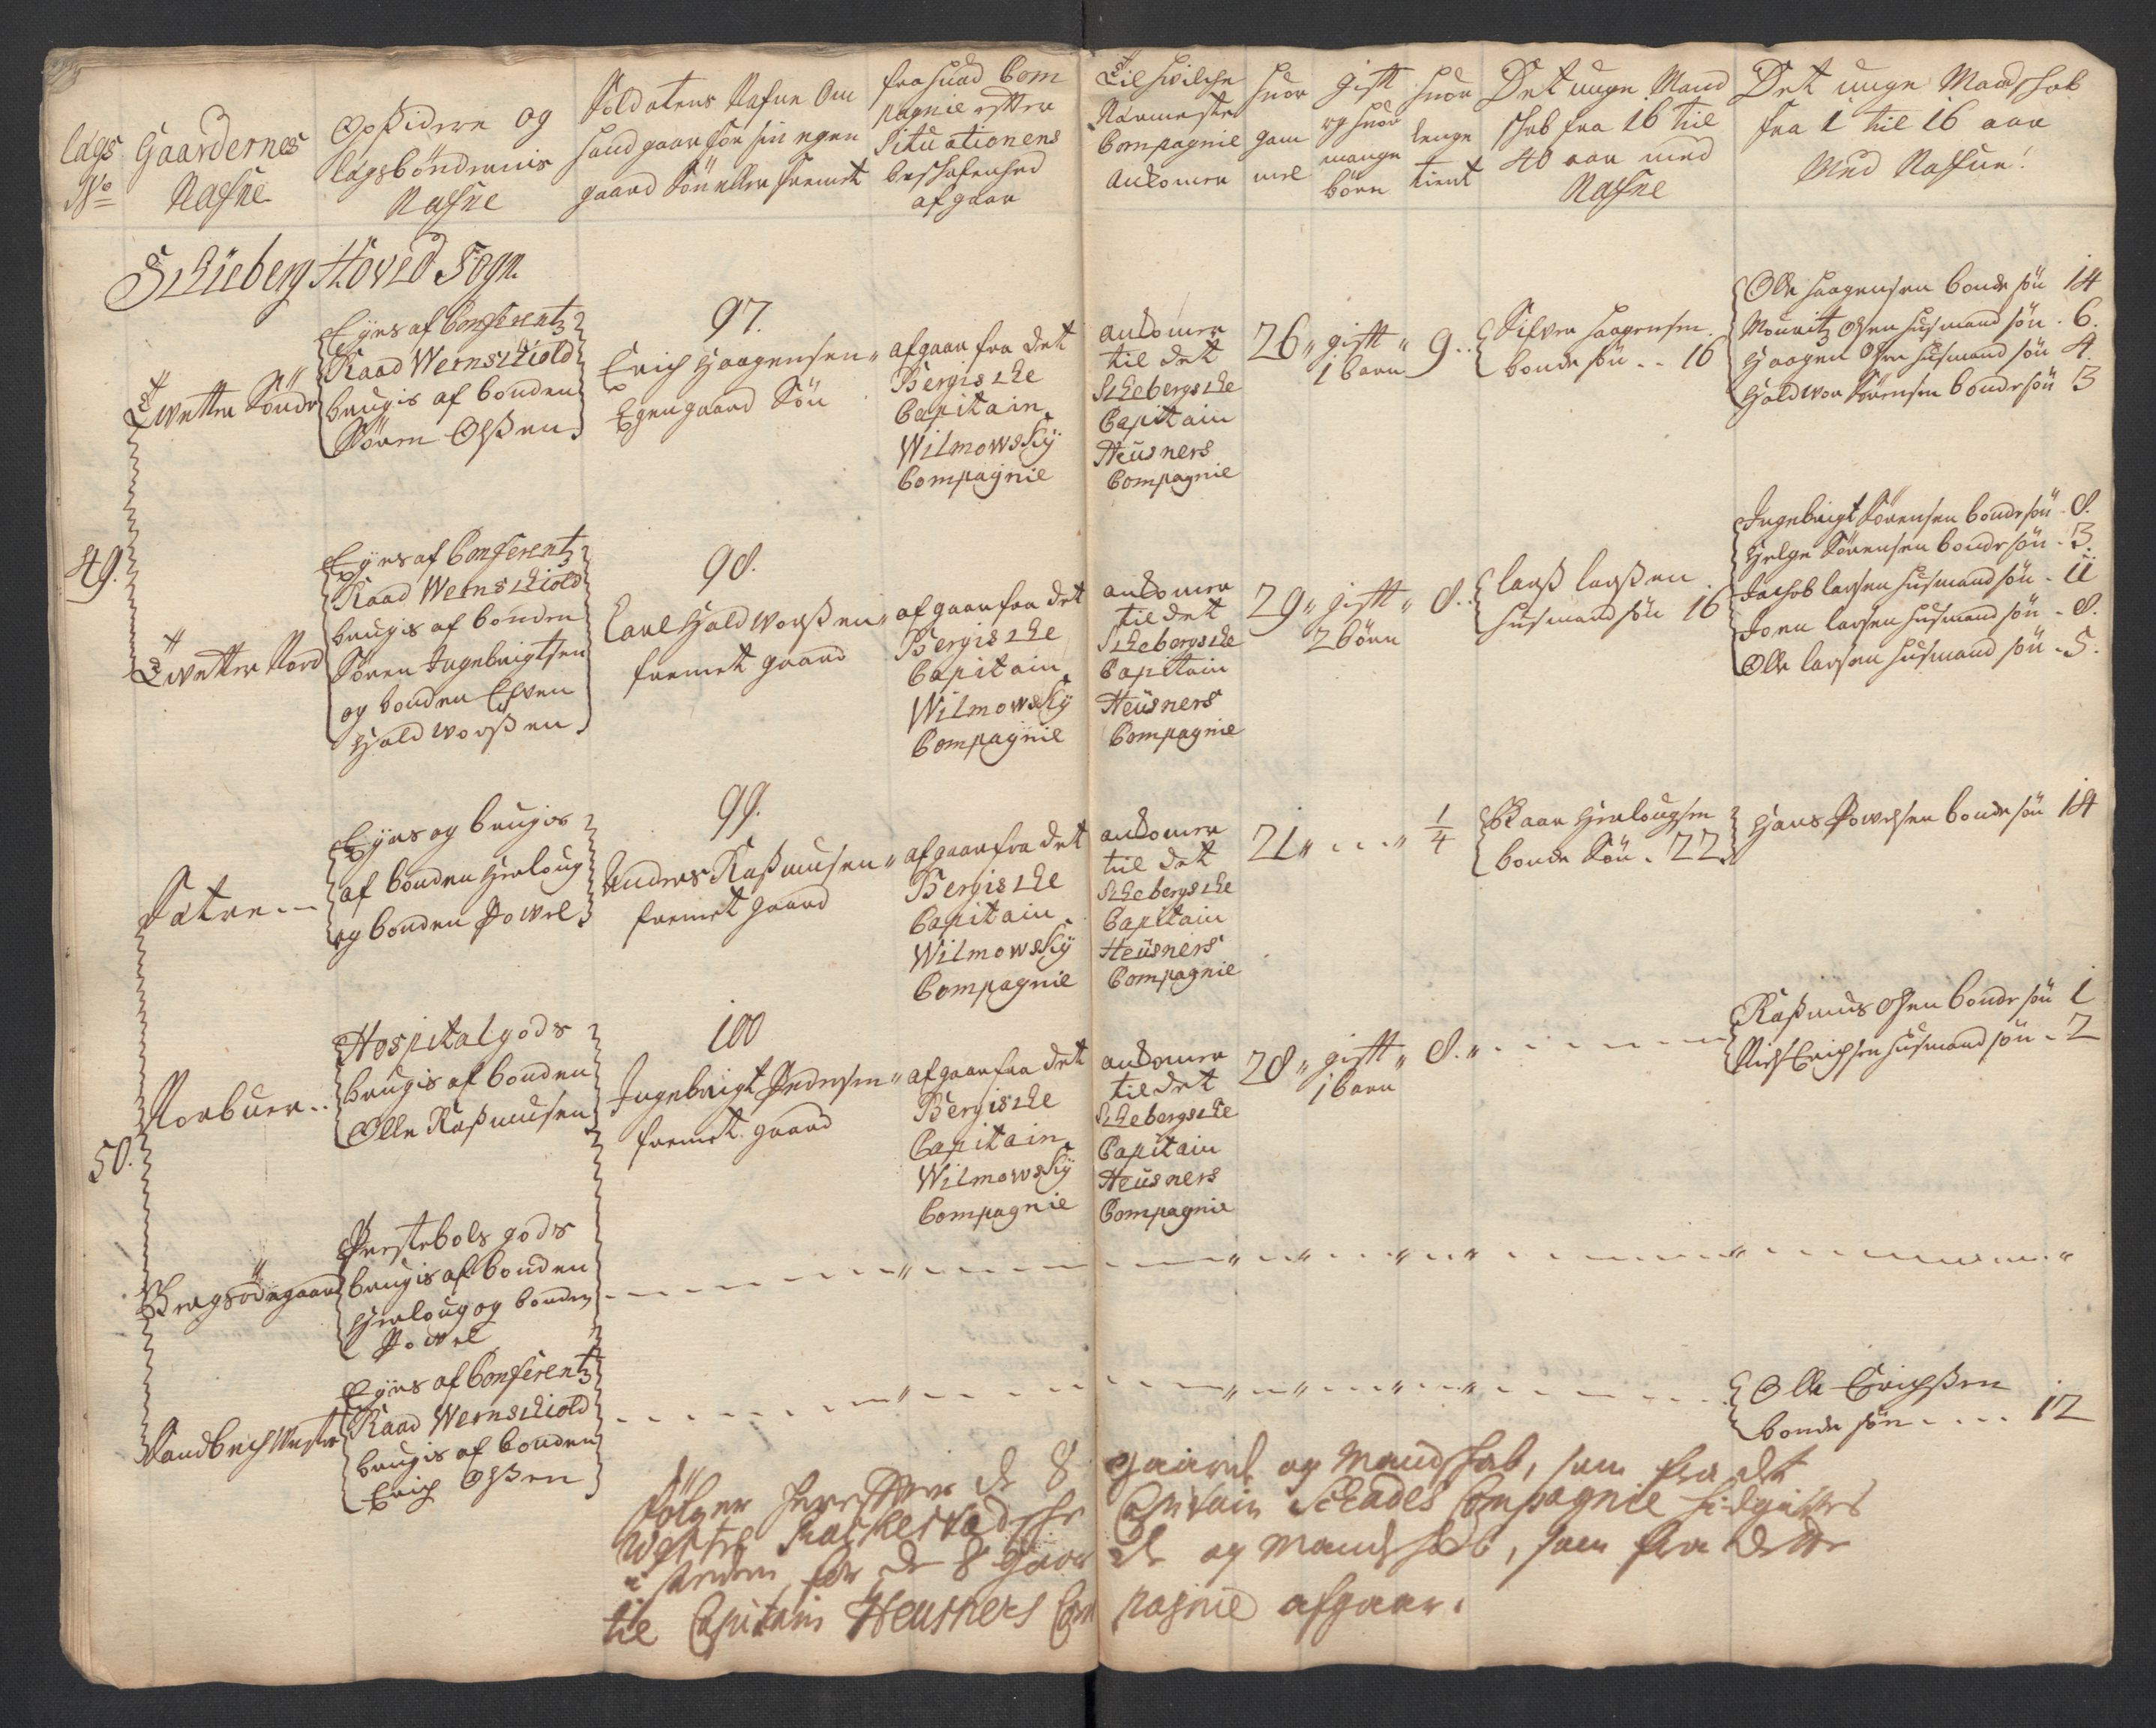 lægs
No
Gaardernes
Nafne
Opsidere og
lægsbønderniis
Nafne
Soldatens Nafne Om
hand gaar for sin egen
gaard Søn eller fremet
fra huad Com
pagnie efter
Situationens
beskafenhed
afgaar
Til hvilche
Nærmeste
Compagnie
ankomer
huor
gam
mel
gift
og huor
mange
børn
huor
lenge
tient
Det unge Mand
skab fra 16 til
40 aar med
Nafne
Det unge Mandskab
fra 1 til 16 aar
Med Nafne
Schieberg Hoved Sogn
Twetter Søndr
Eÿes af Conferentz
Raad Wernschiold
brugis af bonden
Søren Olßen
97.
Erich Haagensen
Egen gaard Søn
afgaar fra det
Bergische
Capitain
Wilmowskÿ
Compagnie
ankomer
til det
Schebergsche
Capitain
Heusners
Compagnie
26 " gift " 9
1 barn
Silfver Haagensen
bonde søn 16
Olle Haagensen bonde søn 14
Mouritz Olsen husmand søn 6.
Haagen Olsen husmand søn 4.
Haldwor Sørensen bonde søn 3
49.
Twetter Nord
Eÿes af Conferentz
Raad Wernschiold
brugis af bonden
Søren Ingebrigtsen
og bonden Efven
Haldworßen
98.
Carl Haldworßen
fremet gaard
afgaar fra det
Bergische
Capitain
Wilmowskÿ
Compagnie
ankomer
til det
Schebergsche
Capitain
Heusners
Compagnie
29 " gift " 8.
2 børn
larß larßen
husmand søn 16
Ingebrigt Sørensen bonde søn 8.
Helge Sørensen bonde søn 3.
Jachob larsen husmand søn 11
Joen larsen husmand søn 8.
Olle larsen husmand søn 5.
Sætre
Eÿes og brugis
af bonden Herloug
og bonden Powel
99.
Anders Raßmusen
fremet gaard
afgaar fra det
Bergische
Capitain
Wilmowskÿ
Compagnie
ankomer
til det
Schebergsche
Capitain
Heusners
Compagnie
21 " " 1/4
Baar Herlougsen
bonde Søn 22
Hans Powelsen bonde søn 14
50.
Norbuer
Hospitalgods
brugis af bonden
Olle Raßmusen
100
Ingebrigt Pedersen
fremet gaard
afgaar fra det
Bergische
Capitain
Wilmowskÿ
Compagnie
ankomer
til det
Schebergsche
Capitain
Heusners
Compagnie
28 " gift " 8.
1 barn
Raßmus Olsen bonde søn 1
Niels Erichsen husmand søn 2
Bergsødegaard
Prestebols gods
brugis af bonden
Herloug og bonden
Powel
Sandbech Westre
Eÿes af Conferentz
Raad Wernschiold
brugis af bonden
Erich Olßen
Olle Erichßen
bonde søn 12
Følger herefter de 8 gaarde og Mandskab, som fra det
Capitain Schades Compagnie hidgifves
i steden for de 8 gaarde og Mandskab, som fra dette
til Capitain Heusners Compagnie afgaar.